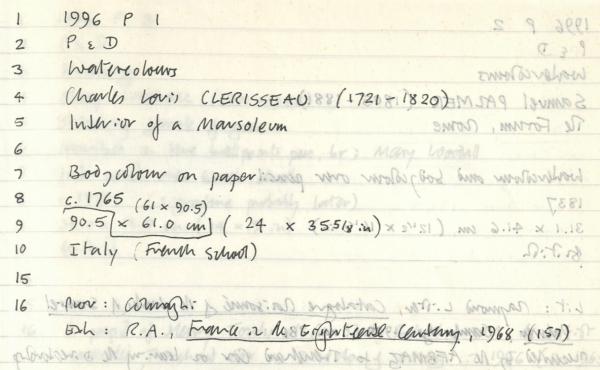 1 1996 P 1
2 P & D
3 Watercolours
4 Charles Louis CLERISSEAU (1721 - 1820)
5 Interior of a Mausoleum
6
7 Bodycolour on paper
8 c. 1765 (61 x 90.5)
9 90.5 x 61.0 cm ( 24 x 35 5/8 in)
10 Italy (French School)
15
16 Prov: Colnaghi
Exh: R.A., France in the Eighteenth Century, 1968 (157)